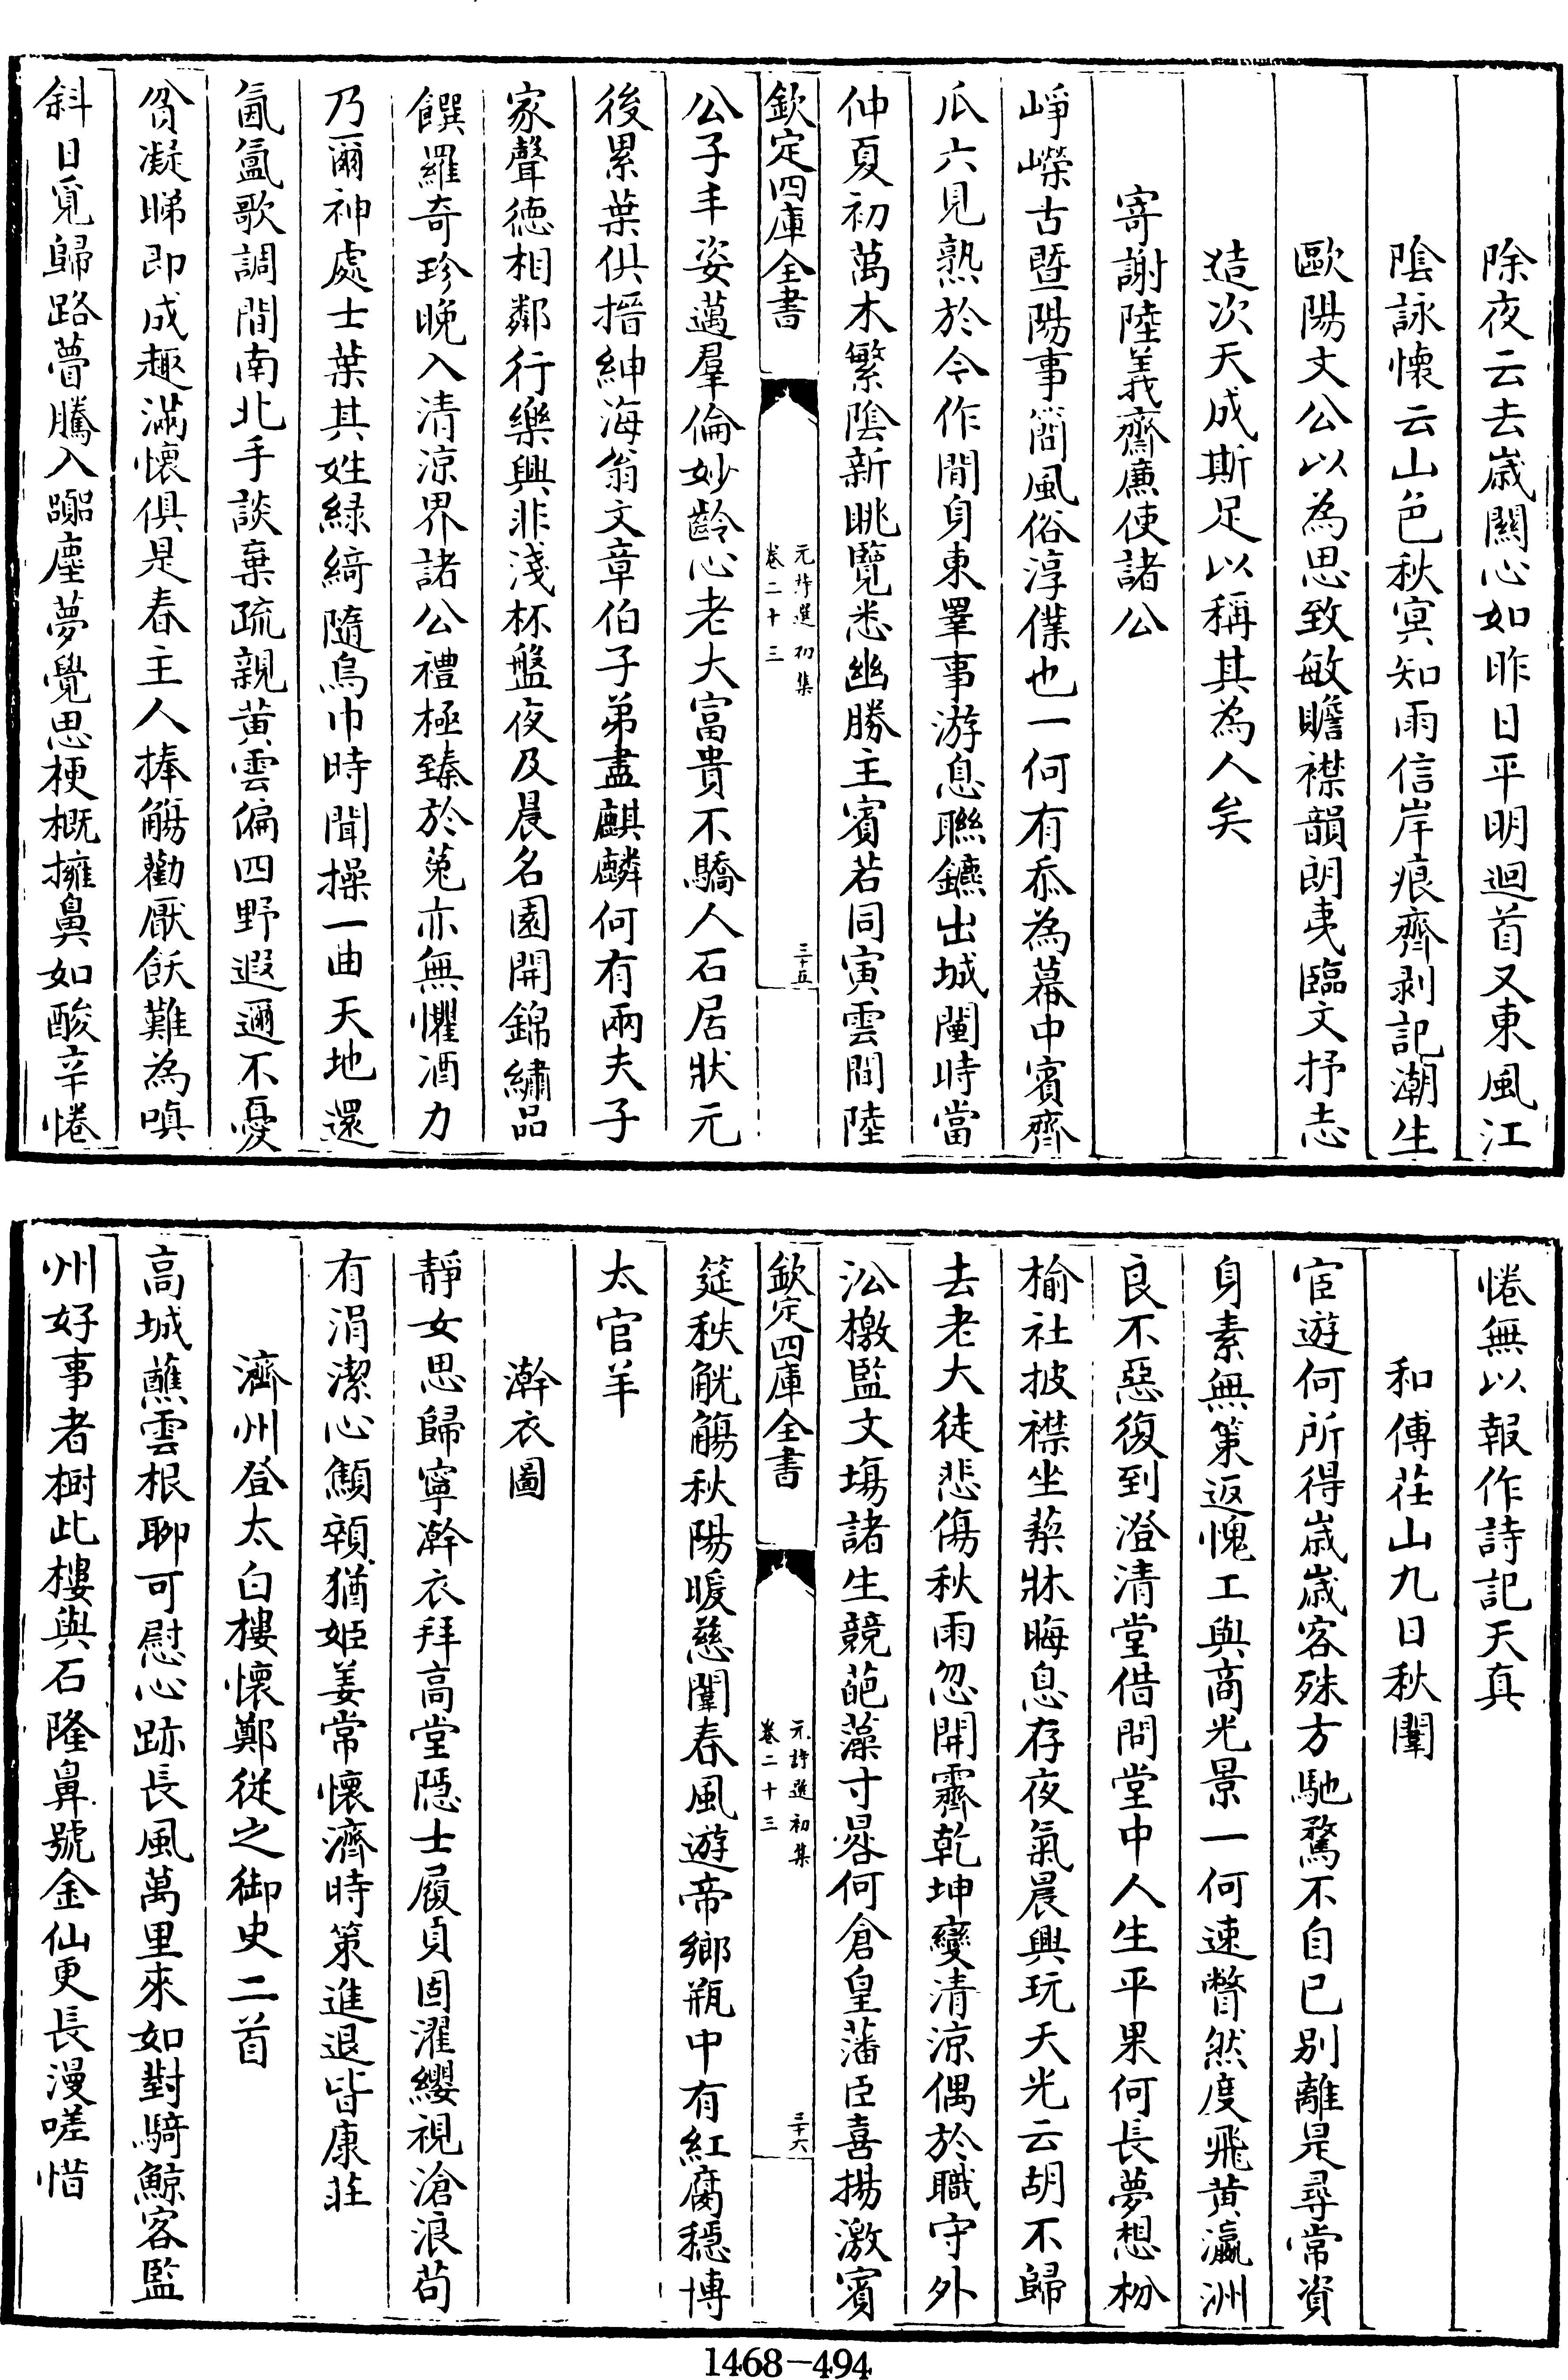 除夜云去歲關心如昨日平明迴首又東風江
陰詠懷云山色秋冥知雨信岸痕齊剥記潮生
歐陽文公以為思致敏贍襟韻朗夷臨文抒志
造次天成斯足以稱其為人矣
寄謝陸義齋廉使諸公
崢嶸古暨陽事簡風俗淳僕也一何有忝為幕中賓齊
瓜六見熟於今作閒身東睪事游息聯鑣出城闉時當
仲夏初萬木繁陰新眺覽悉幽勝主賓若同寅雲間陸
欽定四庫全書
元詩選初集
卷二十三
三十五
公子丰姿邁羣倫妙齡心老大富貴不驕人石居狀元
後累葉俱搢紳海翁文章伯子弟盡麒麟何有兩夫子
家聲德相鄰行樂興非淺杯盤夜及晨名園開錦繡品
饌羅奇珍晚入清涼界諸公禮極臻於菟亦無懼酒力
乃爾神處士葉其姓綠綺隨烏巾時聞操一曲天地還
氤氳歌調間南北手談棄疏親黃雲偏四野遐邇不憂
貧凝睇即成趣滿懷俱是春主人捧觴勸厭飫難為嗔
斜日覓歸路瞢騰入躢塵夢覺思梗概擁鼻如酸辛惓
惓無以報作詩記天真
和傅荘山九日秋闈
宦遊何所得歲歲客殊方馳騖不自已別離是尋常資
身素無策返愧工與商光景一何速瞥然度飛黃瀛洲
良不惡復到澄清堂借問堂中人生平果何長夢想枌
榆社披襟坐蔾牀晦息存夜氣晨興玩天光云胡不歸
去老大徒悲傷秋雨忽開霽乾坤變清涼偶於職守外
㳂檄監文塲諸生競葩藻寸晷何倉皇藩臣喜揚激賓
欽定四庫全書
元詩選初集
卷二十三
三十六
筵秩觥觴秋陽暖慈闈春風遊帝鄉瓶中有紅腐穩博
太官羊
澣衣圖
靜女思歸寧澣衣拜高堂隱士履貞固濯纓視滄浪苟
有涓潔心顦顇猶姬姜常懷濟時策進退皆康莊
濟州登太白樓懷鄭從之御史二首
高城蘸雲根聊可慰心跡長風萬里來如對騎鯨客監
州好事者樹此樓與石隆鼻號金仙更長漫嗟惜
1468-494